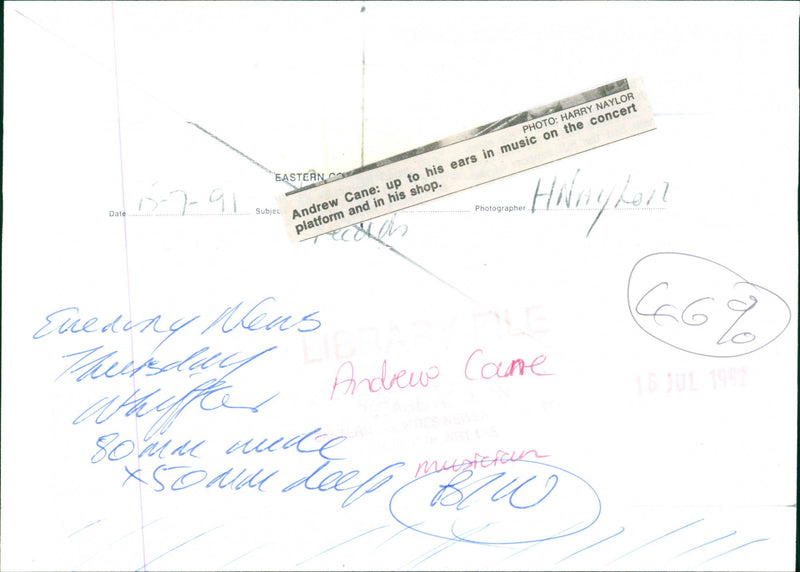 PHOTO: HARRY NAYLOR
Andrew Cane: up to his ears in music on the concert
platform and in his shop.
EASTERN CO
Date 15-7-91 Subjec Photographer HNAylor
Evening News
Thursday
Whiffler
80mm wide
x50mm deep
B/W
46%
LIBRARY FILE
Andrew Cane
16 JUL 1992
musician